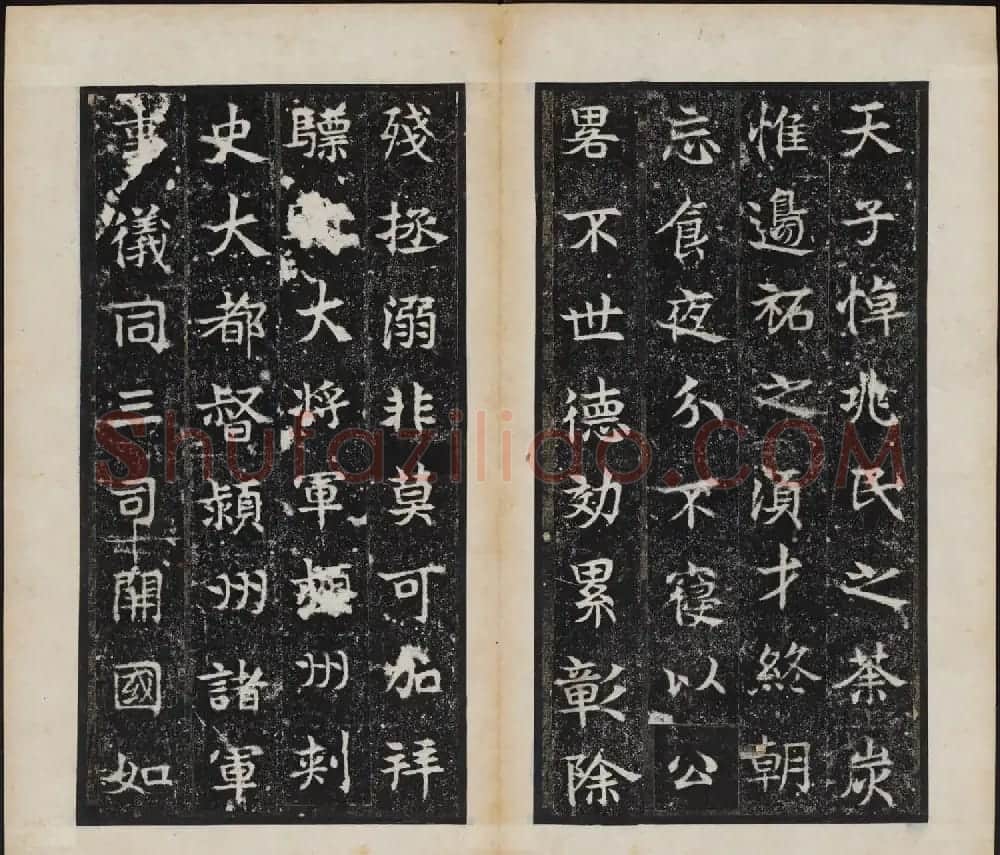 天子悼兆民之荼炭
惟邊祏之湏才終朝
忘食夜分不寑以公
畧不世德効累彰除
殘拯溺非莫可加拜
驃大將軍潁州刾
史大都督潁州諸軍
事儀同三司開國如
Shufaziliao.COM